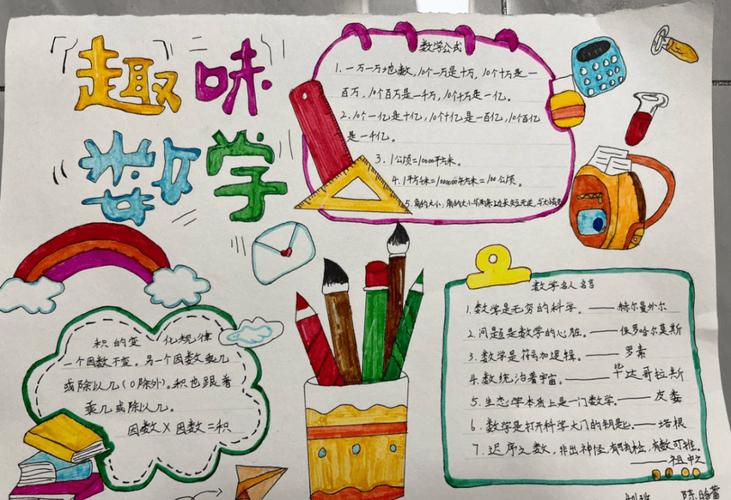 趣味
数学
数学公式
1.一万一万地数,10个一万是十万,10个十万是一
百万,10个百万是一千万,10个千万是一亿。
2.10个一亿是十亿,10个十亿是一百亿,10个百亿
是一千亿。
3.1公顷=10000平方米。
4.1平方千米=1000000平方米=100公顷。
5.角的大小,角的大小
积的变化规律
一个因数不变,另一个因数乘几
或除以几(0除外),积也跟着
乘几或除以几。
因数×因数=积
数学名人名言
1.数学是无穷的科学。——赫尔曼外尔
2.问题是数学的心脏。——保罗哈尔莫斯
3.数学是符号加逻辑。——罗素
4.数统治着宇宙。——毕达哥拉斯
5.生态学本质上是一门数学。——皮
6.数学是打开科学大门的钥匙。——培根
7.迟序之数,非出神怪,有形有检,有数可推。
——祖冲之
陈